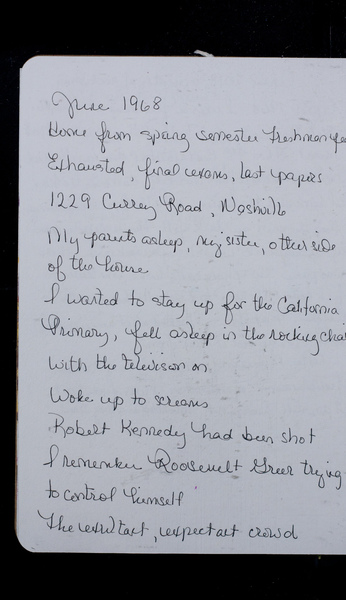 June 1968
Home from spring semester freshman yea
Exhausted, final exams, last papers
1229 Currey Road, Nashville
My parents asleep, my sister, other side
of the house
I wanted to stay up for the California
Primary, fell asleep in the rocking chai
with the television on
Woke up to screams
Robert Kennedy had been shot
I remember Roosevelt Greer trying
to control himself
The exultant, expectant crowd